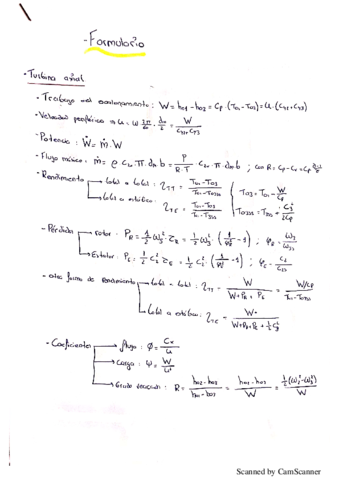 - Formulario
- Turbina axial
- Trabajo del escalonamiento: W = h01 - h03 = Cp · (T01 - T03) = u · (Cy2 + Cy3)
- Velocidad periférica ⇒ u = ω 2π/60 · dm/2 = W/(Cy2 + Cy3)
- Potencia: Ẇ = ṁ · W
- Flujo másico: ṁ = ρ C2x · π · dm b = P/(R·T) C2x · π · dm b ; con R = Cp - Cv = Cp
- Rendimiento → total a total: ηTT = (T01 - T03)/(T01 - T03ss) | T03 = T01 - W/Cp
→ total a estático: ηTE = (T01 - T03)/(T01 - T3ss)
- Pérdida → rotor: PR = 1/2 ω3² · ζR = 1/2 ω3² · (1/ψR² - 1) ; ψR = ω3/ω3s
→ Estator: PE = 1/2 C2² ζE = 1/2 C2² · (1/ψE² - 1) ; ψE = C2/C2s
- Otra forma de Rendimiento → total a total: ηTT = W/(W + PR + PE) = (W/Cp)/(T01 - T03ss)
→ total a estático: ηTE = W/(W + PR + PE + 1/2 C3²)
- Coeficientes → flujo: Φ = Cx/u
→ Carga: ψ = W/u²
→ Grado reacción: R = (h02 - h03)/(h01 - h03) = (h01 - h03)/W = 1/2(ω2² - ω3²)/W
Scanned by CamScanner